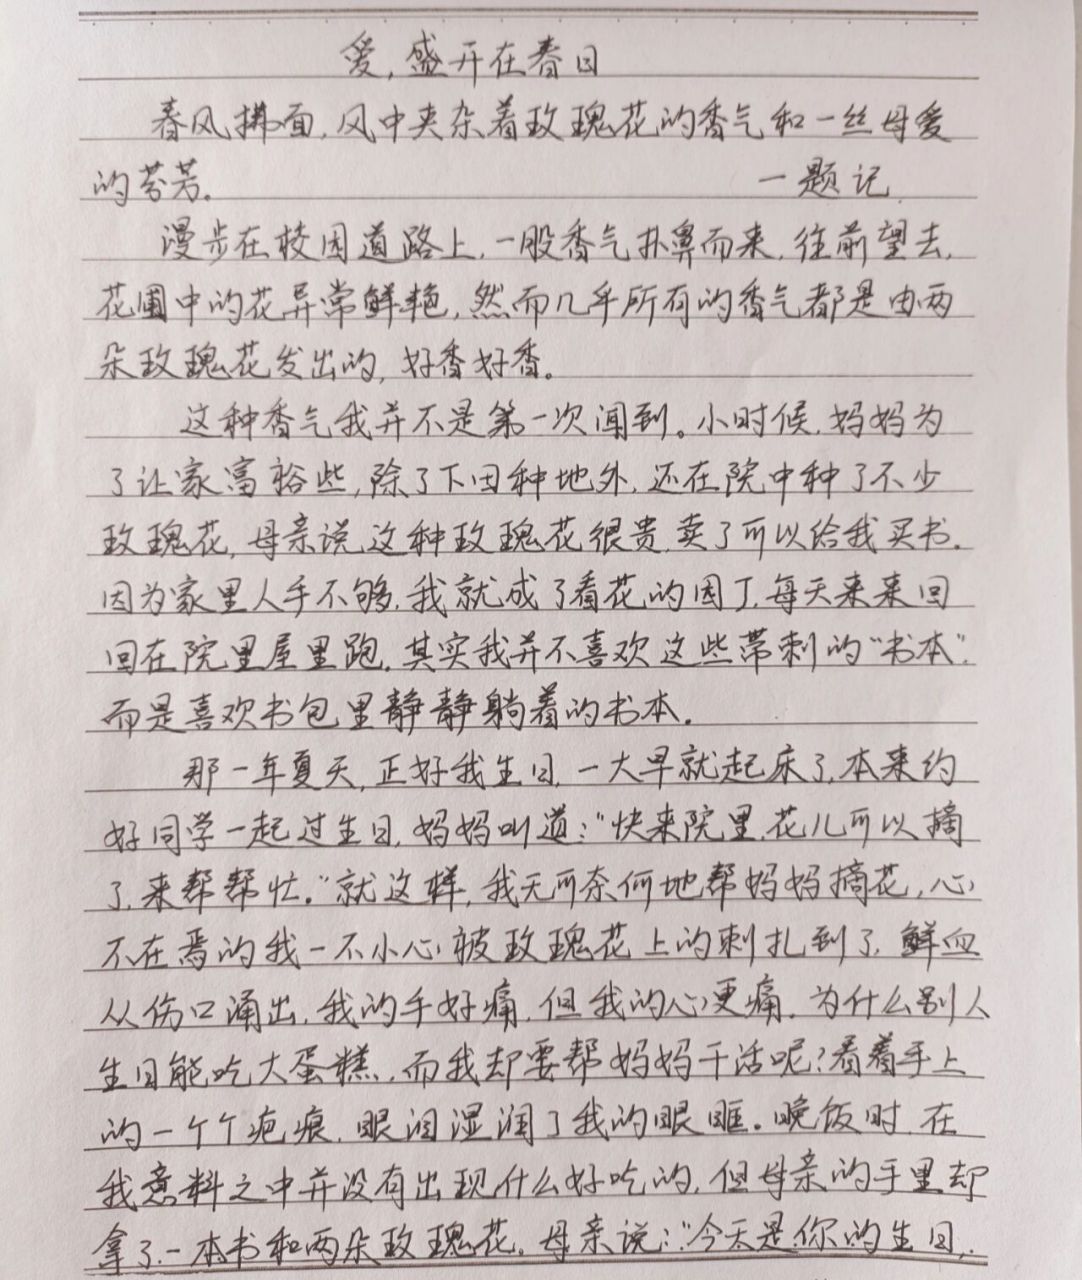 爱,盛开在春日
春风拂面,风中夹杂着玫瑰花的香气和一丝母爱
的芬芳。 一题记
漫步在校园道路上,一股香气扑鼻而来,往前望去,
花圃中的花异常鲜艳,然而几乎所有的香气都是由两
朵玫瑰花发出的,好香好香。
这种香气我并不是第一次闻到。小时候,妈妈为
了让家富裕些,除了下田种地外,还在院中种了不少
玫瑰花,母亲说这种玫瑰花很贵,卖了可以给我买书。
因为家里人手不够,我就成了看花的园丁,每天来来回
回在院里屋里跑,其实我并不喜欢这些带刺的“书本”,
而是喜欢书包里静静躺着的书本。
那一年夏天,正好我生日,一大早就起床了,本来约
好同学一起过生日,妈妈叫道:“快来院里,花儿可以摘
了,来帮帮忙。”就这样,我无可奈何地帮妈妈摘花,心
不在焉的我一不小心被玫瑰花上的刺扎到了,鲜血
从伤口涌出,我的手好痛,但我的心更痛,为什么别人
生日能吃大蛋糕,而我却要帮妈妈干活呢?看着手上
的一个个疤痕,眼泪湿润了我的眼眶。晚饭时,在
我意料之中并没有出现什么好吃的,但母亲的手里却
拿了一本书和两朵玫瑰花。母亲说:“今天是你的生日,